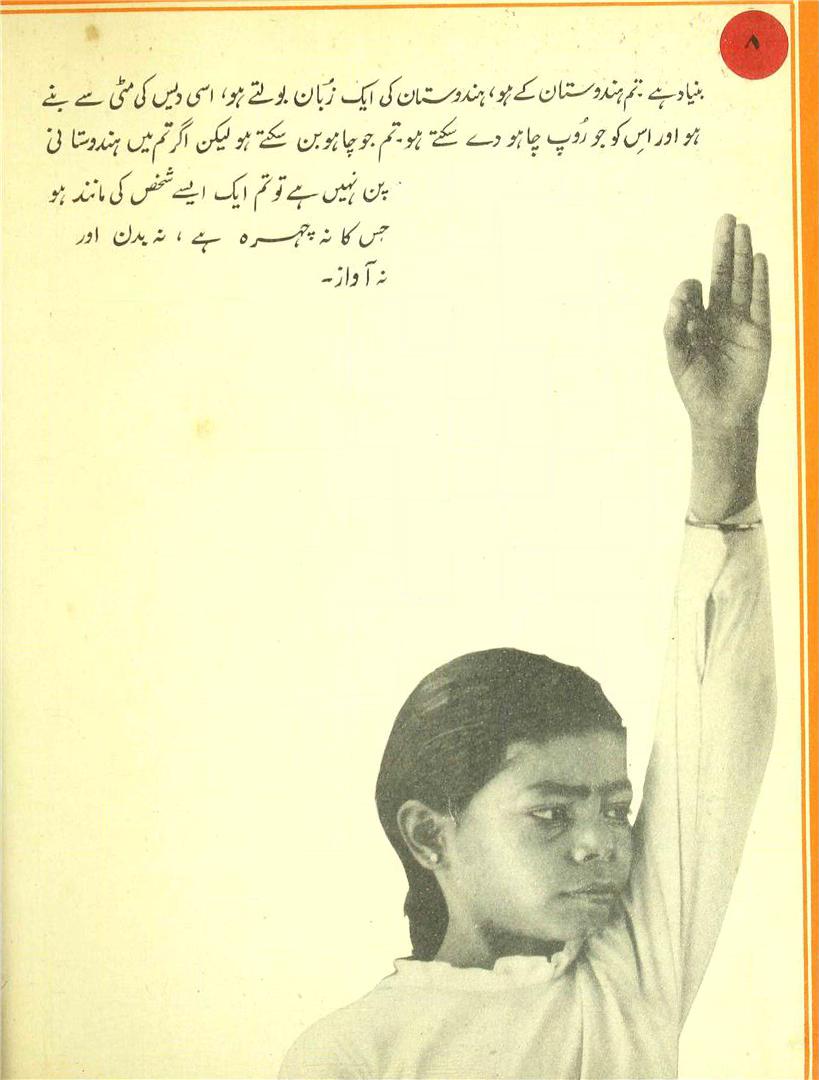 ۸
بنیاد ہے۔ تم ہندوستان کے ہو، ہندوستان کی ایک زبان بولتے ہو، اسی دیس کی مٹی سے بنے
ہو اور اِس کو جو رُوپ چاہو دے سکتے ہو۔ تم جو چاہو بن سکتے ہو لیکن اگر تم میں ہندوستانی
پن نہیں ہے تو تم ایک ایسے شخص کی مانند ہو
جس کا نہ چہرہ ہے، نہ بدن اور
نہ آواز۔